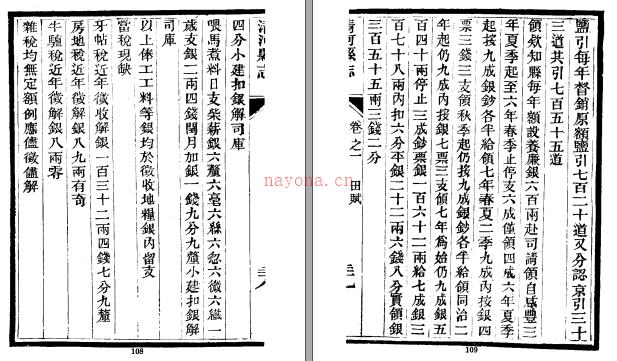 鹽引每年督銷原額鹽引七百二十道又分認京引三十
三道其引七百五十五道
領欸知縣每年額設養廉銀六百兩赴司請領自咸豐三
年夏季起至六年春季止停支六成僅領四成六年夏季
起接九成銀鈔各半給領七年春夏二季九成內按銀四
票三錢三支領秋季起仍按九成銀鈔各半給領同治二
年起仍九成內按銀七票三支領七年為始仍九成銀五
百四十兩停止三成鈔票銀一百六十二兩給七成銀三
百七十八兩內扣六分平銀二十二兩六錢八分實領銀
三百五十五兩三錢二分
清河縣志
卷之一 田賦
108
清河縣志
四分小建扣銀解司庫
喂馬煮料日支柴薪銀六釐六毫六絲六忽六微六纖一
歲支銀二兩四錢閏月加銀一錢九分九釐小建扣銀解
司庫
以上俸工工料等銀均於徵收地糧銀內留支
當稅現缺
牙帖稅近年徵解銀一百三十二兩四錢七分九釐
房地稅近年徵解銀八九兩有奇
牛驢稅近年徵解銀八兩零
雜稅均無定額例應儘徵儘解
109
nayona.cn